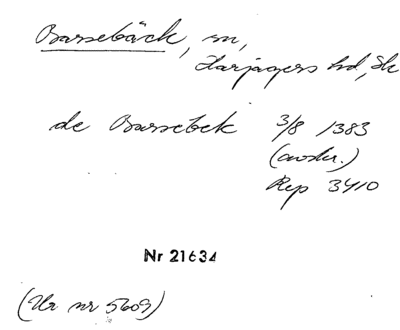 Barsebäck, sn,
Harjagers hd, Sk
de Barsebek 3/8 1383
(avskr.)
Rep 3410
Nr 21634
(Ur nr 5609)